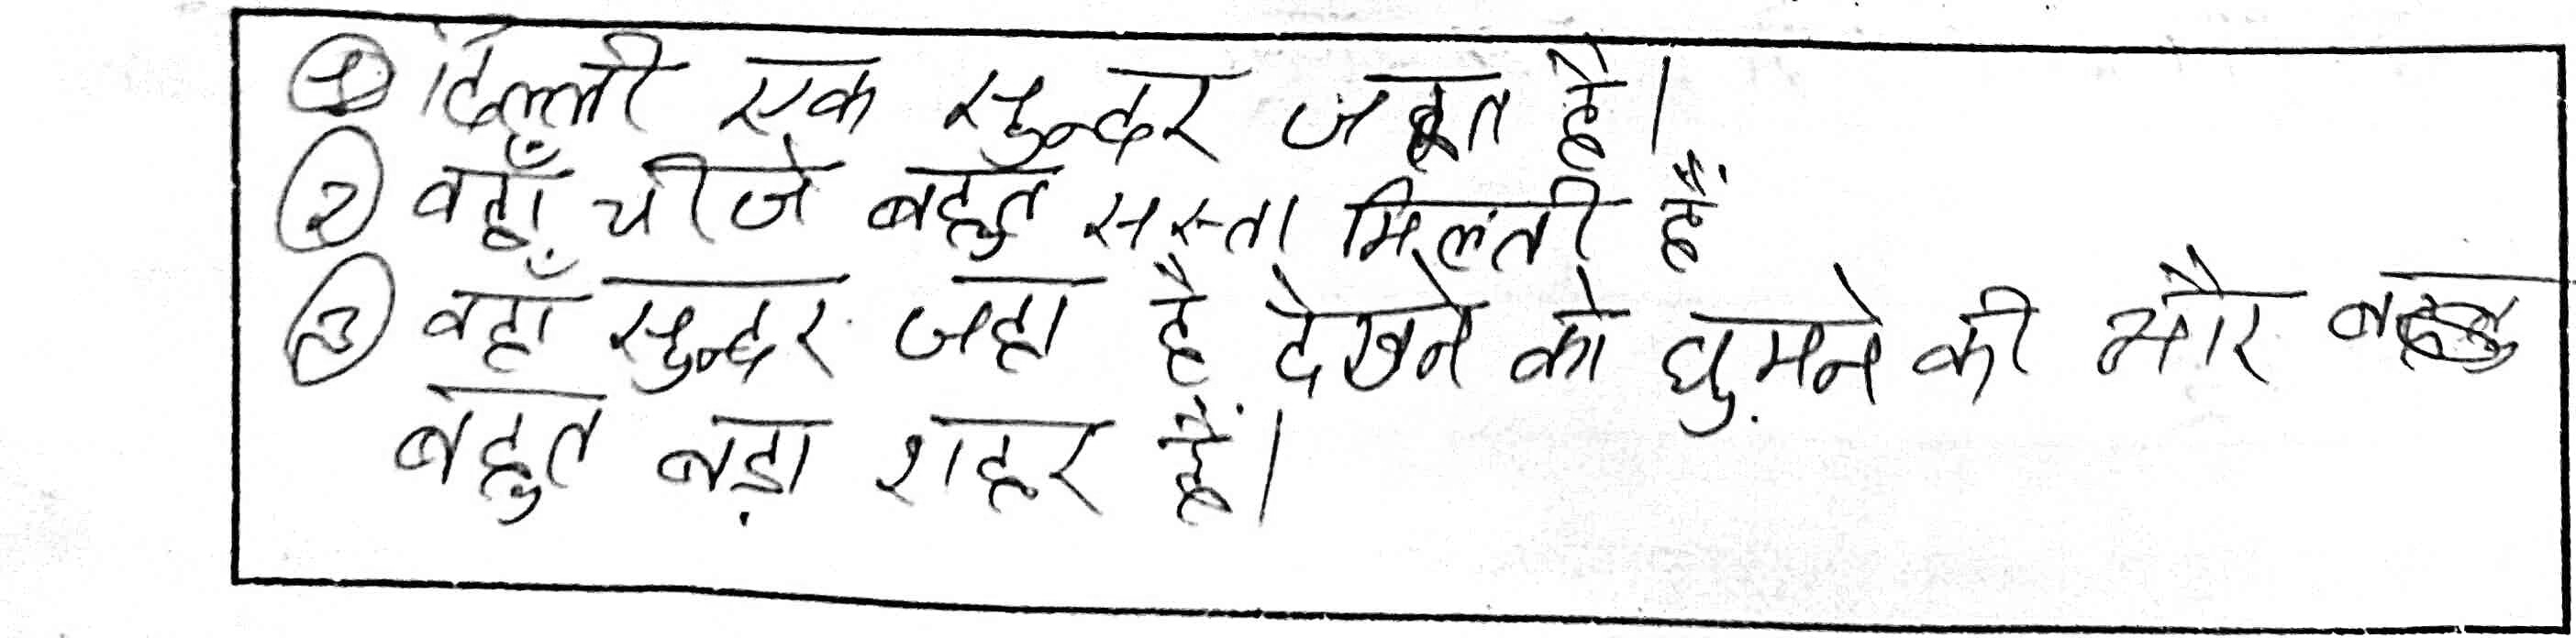 ① दिल्ली एक सुन्दर है।
② वहाँ चीजे बहुत सस्ता मिलती हैं
③ वहाँ सुन्दर जहा है देखने को घुमने की और
बहुत बड़ा शहर हैं।